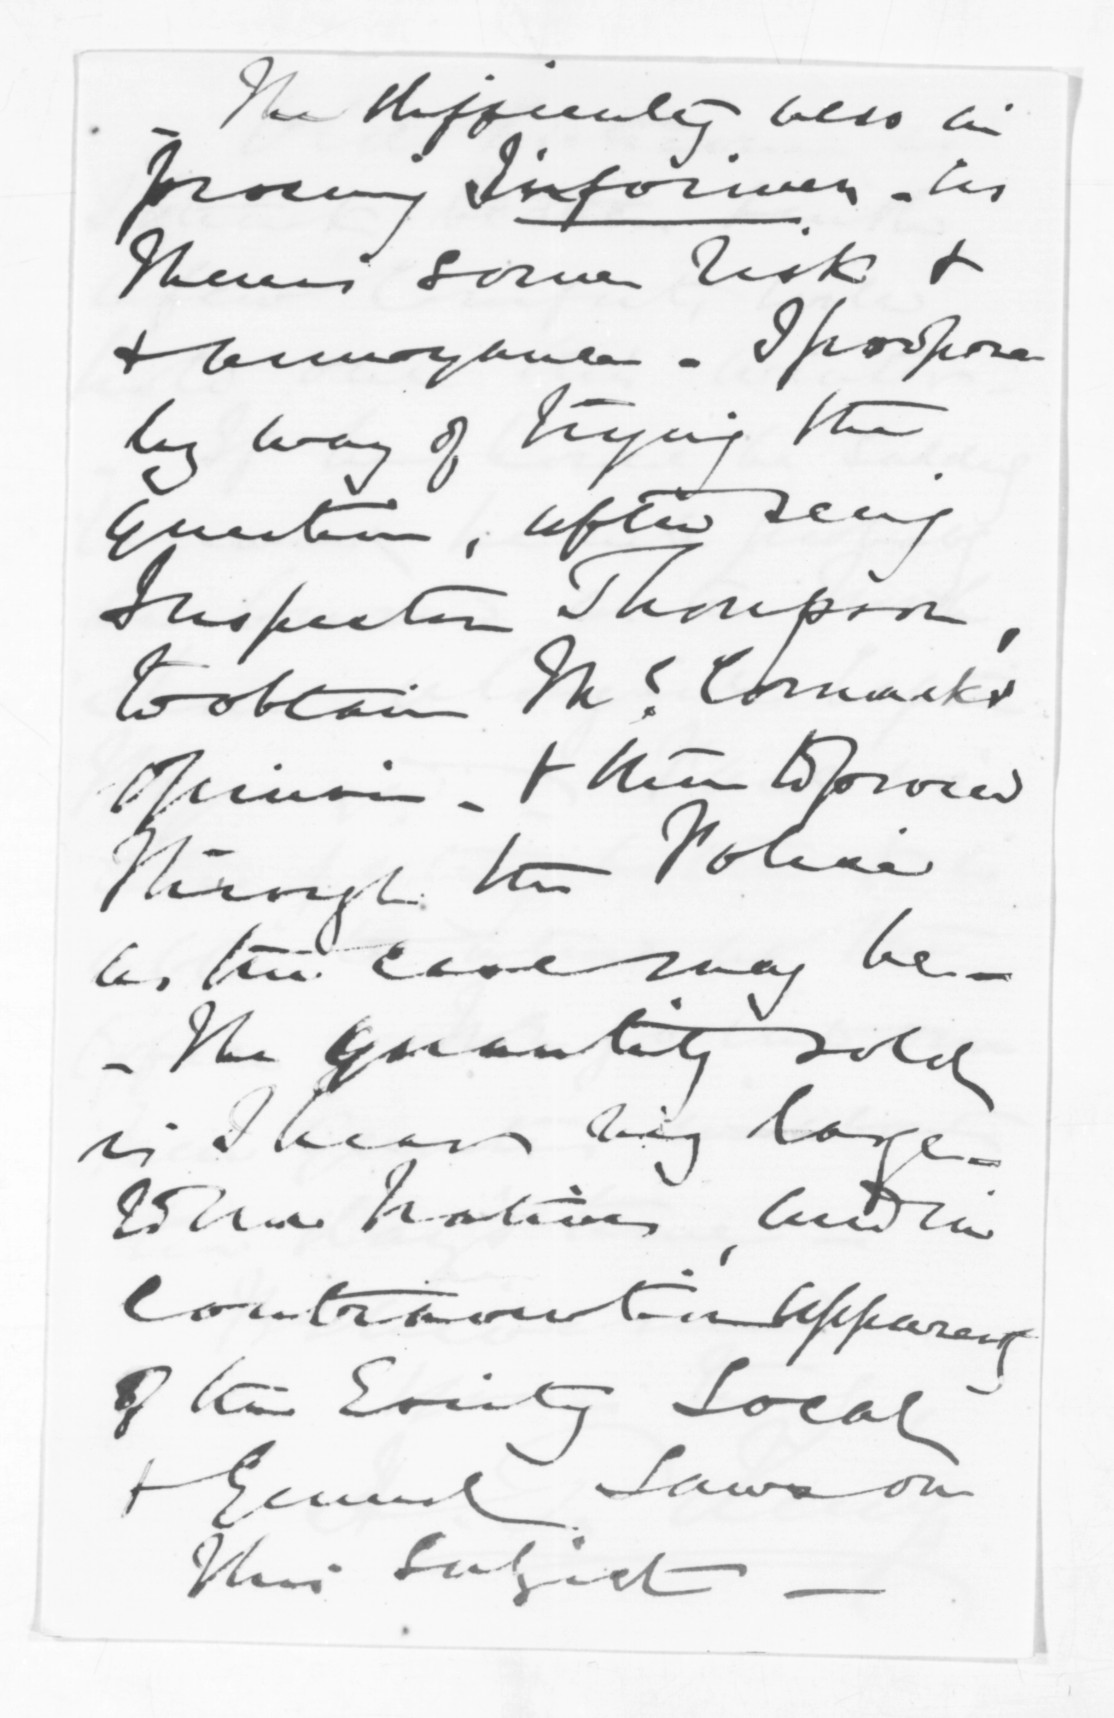 The difficulty also in
- proving Informer - as
there is some risk &
& annoyance - I propose
by way of trying the
question, after seeing
Inspector Thompson,
to obtain Mc. Cormacks
opinion - & then to proceed
through the Police
as the case may be -
- The quantity sold
is I hear very large -
to the Natives, and in
contravention apparently
of the Existing Local
& General Laws on
this subject -